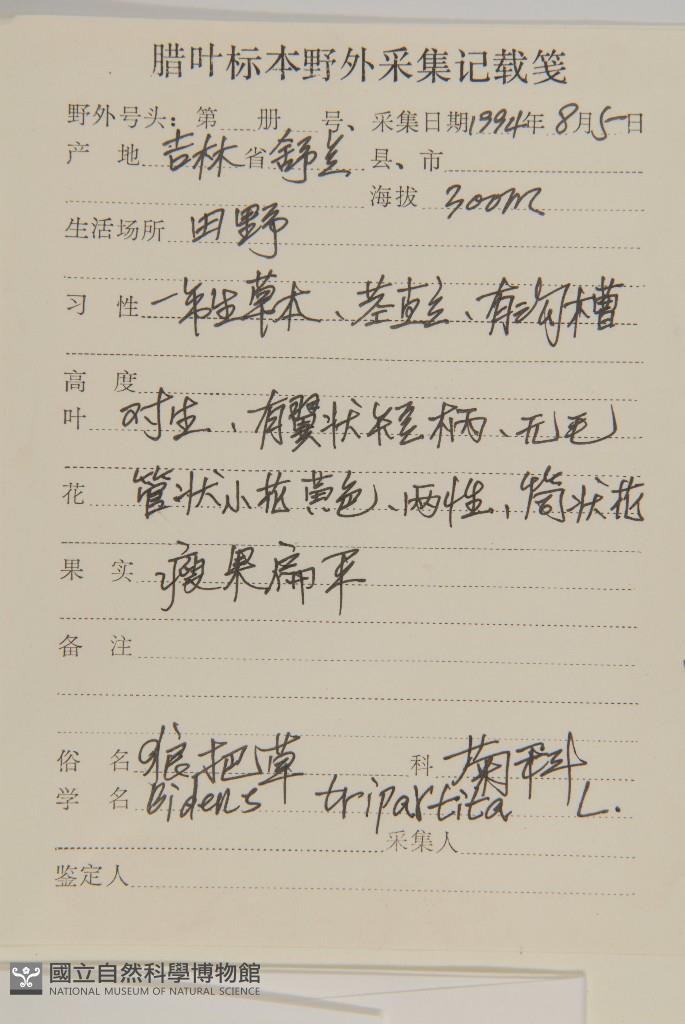 腊叶标本野外采集记载笺
野外号头：第 册 号、采集日期1994年8月5日
产 地 吉林省舒兰县、市
海拔 300m
生活场所 田野
习 性 一年生草本、茎直立、有沟槽
高 度
叶 对生、有翼状短柄、无毛
花 管状小花黄色、两性、筒状花
果 实 瘦果扁平
备 注
俗 名 狼把草 科 菊科
学 名 Bidens tripartita L.
采集人
鉴定人
國立自然科學博物館
NATIONAL MUSEUM OF NATURAL SCIENCE